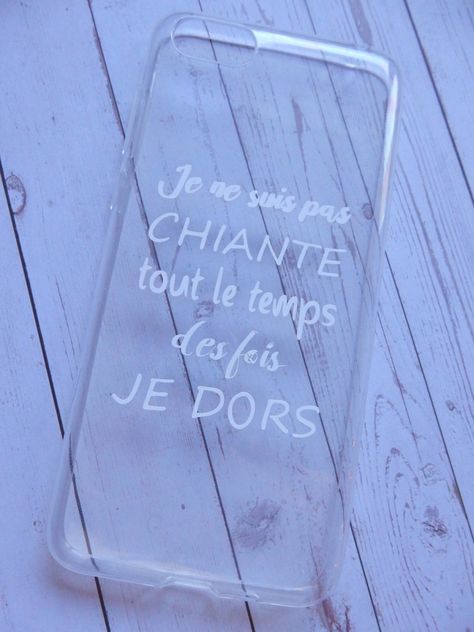 Je ne suis pas
CHIANTE
tout le temps
des fois
JE DORS